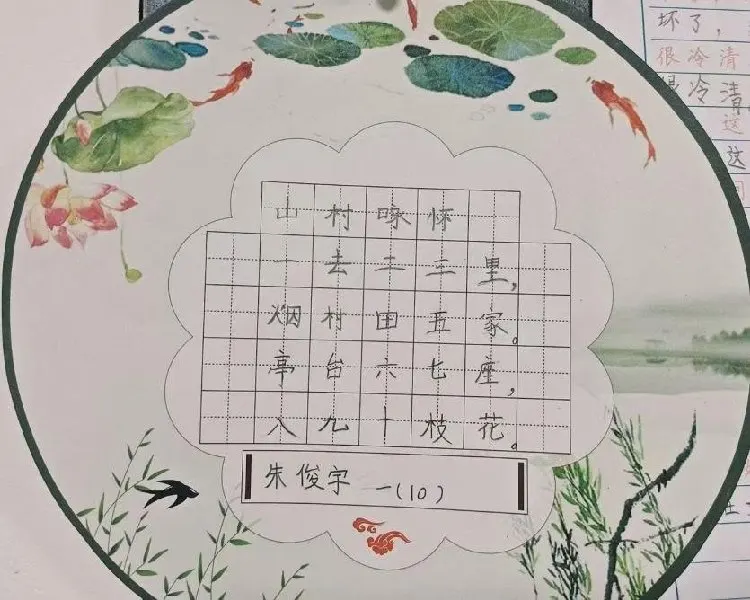 山村咏怀
一去二三里，
烟村田五家。
亭台六七座，
八九十枝花。
朱俊宇 一(10)
坏了，
很冷清
很冷清
这
这